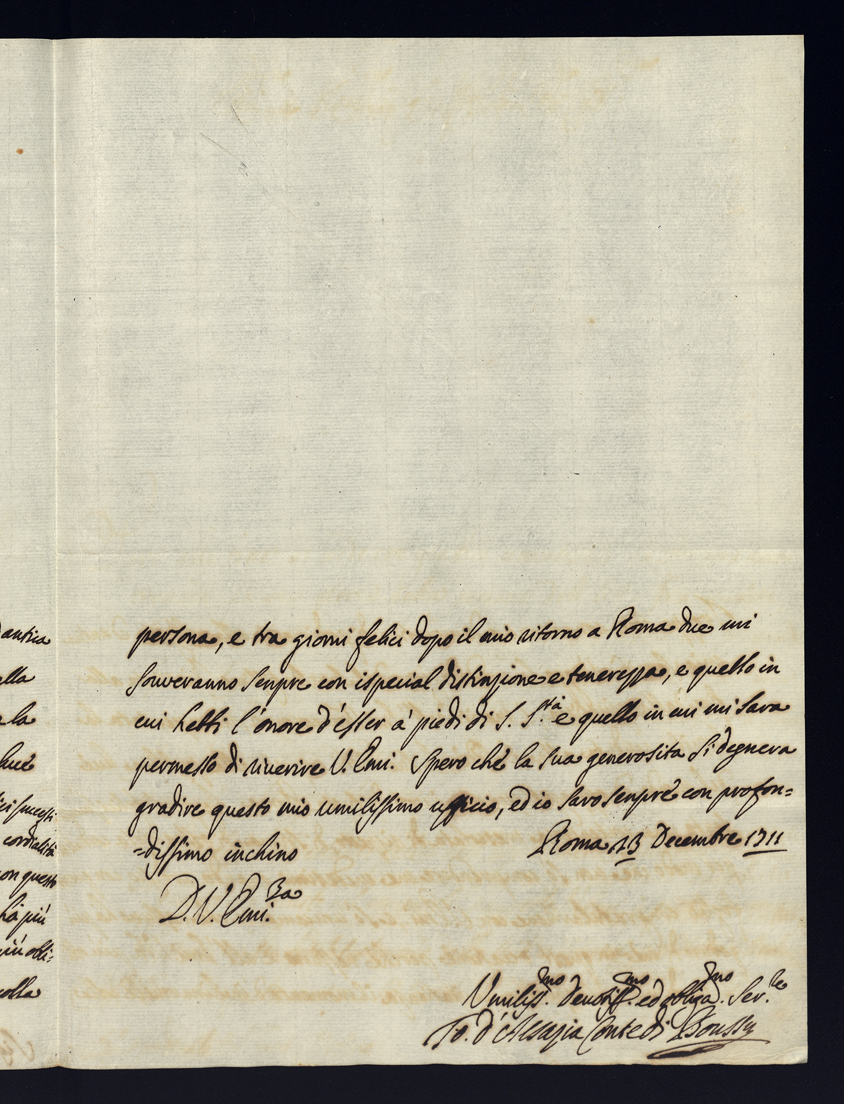 d'antica
alla
a la
ici sucessi
cordialità
con questo
hà più
più obli-
colla
persona, e tra giorni felici dopo il mio ritorno a Roma due mi
souveranno senpre con ispecial distinzione e tenerezza, e quello in
cui hebbi l'onore d'esser a' piedi di S. S.tà e quello in cui mi sara
permesso di riuerire V. Emi. Spero che la sua generosita si degnera
gradire questo mio umilissimo ufficio, ed io saro senpre con profon=
=dissimo inchino
Roma 13 Decembre 1711
D. V. Emi.za
Umiliss.mo deuotiss.mo ed obliga.mo Ser.re
To. d'Alsazia Conte di Boussu